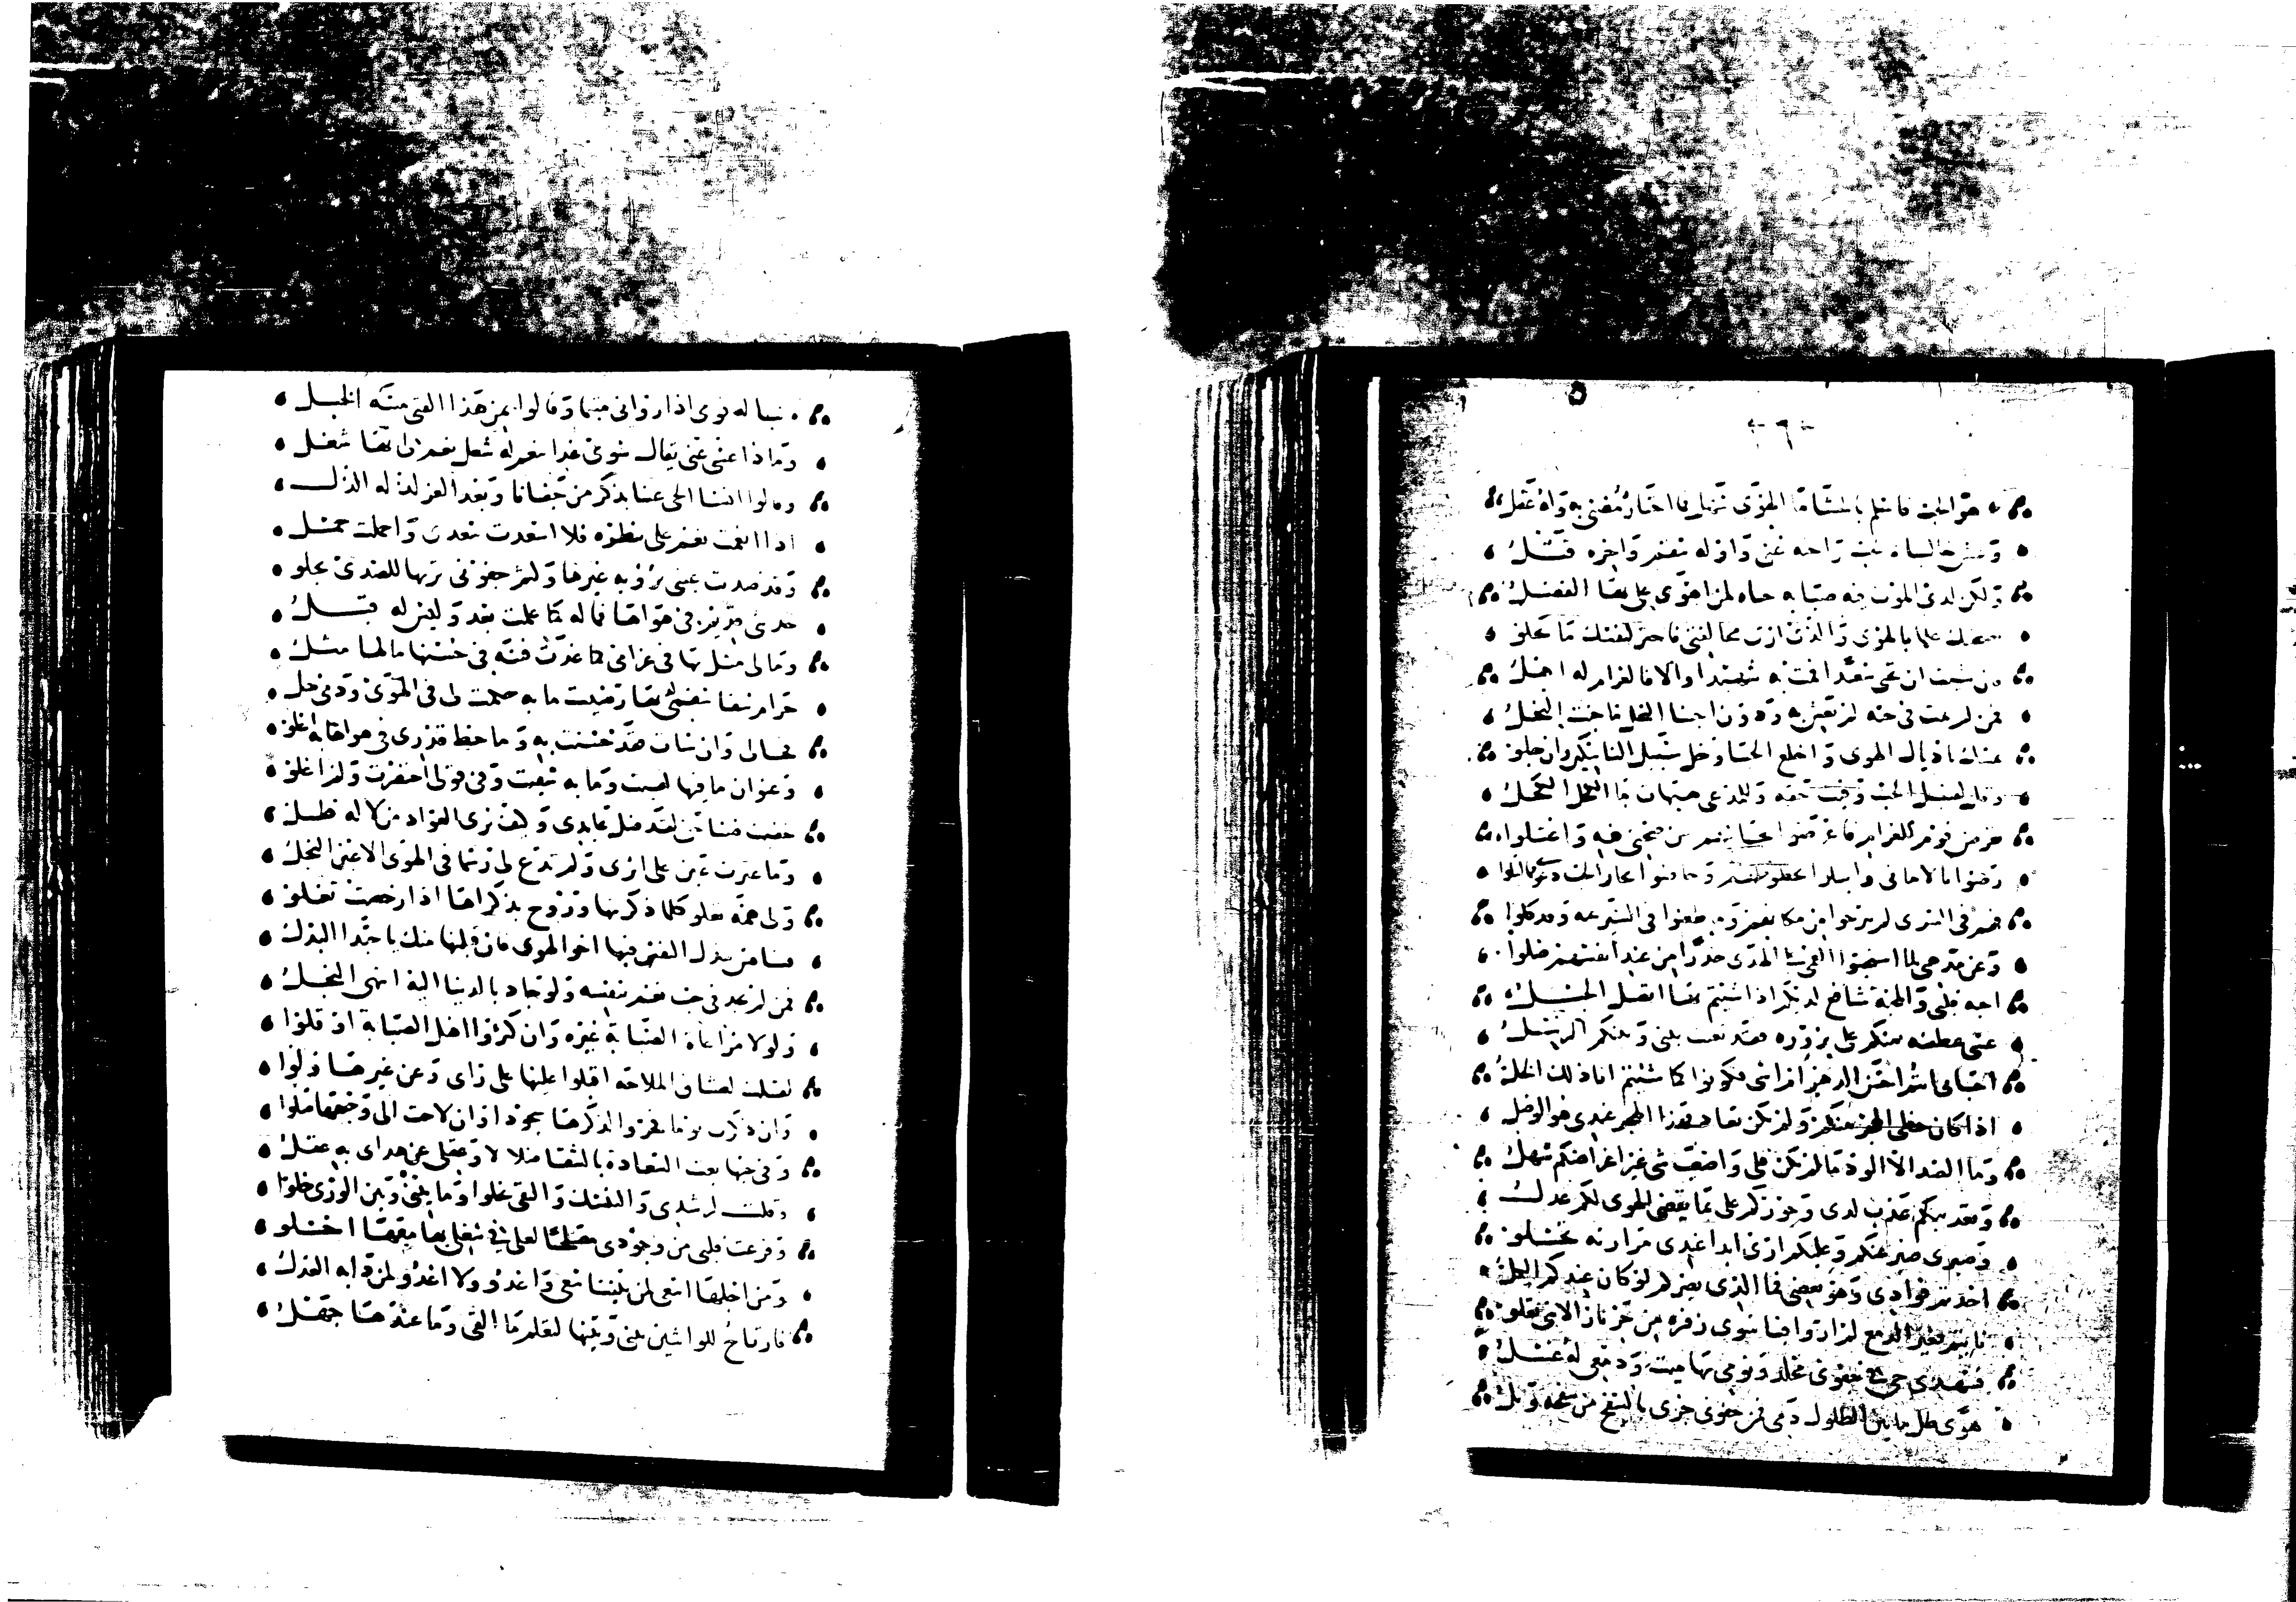 هو الحب فاسلم بالحشا ما الهوى سهل فما اختاره مضنى به وله عقل
وعش خاليا فالحب راحته عنى واوله سقم واخره قتل
ولكن لدي الموت فيه صبابة حياة لمن اهوى علي بها الفضل
نصحتك علما بالهوى والذي ارى مخالفتي فاختر لنفسك ما يحلو
فان شئت ان تحيى سعيدا فمت به شهيدا والا فالغرام له اهل
فمن لم يمت في حبه لم يعش به ودون اجتنا النحل ما جنت النحل
تمسك باذيال الهوى واخلع الحيا وخل سبيل الناسكين وان جلوا
وقل لقتيل الحب وفيت حقه وللمدعي هيهات ما الكحل الكحل
تعرض قوم للغرام فاعرضوا بجانبهم عن صحتي فيه واعتلوا
رضوا بالاماني وابتلوا بحظوظهم وخاضوا بحار الحب دعوى فما ابتلوا
فهم في السرى لم يبرحوا من مكانهم وما ظعنوا في السير عنه وقد كلوا
وعن مذهبي لما استحبوا العمى على الهدى حسدا من عند انفسهم ضلوا
احبة قلبي والمحبة شافعي لديكم اذا شئتم بها اتصل الحبل
عسى عطفة منكم علي بزورة فقد تعبت بيني وبينكم الرسل
احباي انتم احسن الدهر ام اسى فكونوا كما شئتم انا ذلك الخل
اذا كان حظي الهجر منكم ولم يكن بعاد فذا الهجر عندي هو الوصل
وما الصد الا الود ما لم يكن قلى واصعب شي غير اعراضكم سهل
وتعذيبكم عذب لدي وجوركم علي بما يقضي الهوى لكم عدل
وصبري صبر عنكم وعليكم ارى ابدا عندي مرارته تحلو
اخذتم فوادي وهو بعضي فما الذي يضركم لو كان عندكم الكل
نايتم فغير الدمع لم ار وافيا سوى زفرة من حر نار الاسى تغلو
فسهدي حي في جفوني مخلد ونومي بها ميت ودمعي له غسل
هوى طل ما بين الطلول دمي فمن جفوني جرى بالسفح من سفحه وبل
تباله قومي اذ راوني متيما وقالوا بمن هذا الفتى مسه الخبل
وماذا عسى عني يقال سوى غدا بنعم له شغل نعم لي بها شغل
وقالوا نسا الحي عنا بذكر من جفانا وبعد العز لذ له الذل
اذا انعمت نعم علي بنظرة فلا اسعدت سعدى ولا اجملت جمل
وقد صديت عيني برؤية غيرها ولثم جفوني تربها للصدى يجلو
حديثي قديم في هواها فما له كما علمت بعد وليس له قبل
وما لي مثل بها في غرامي كما غدت فتنة في حسنها ما لها مثل
حرام شفا سقمي لديها رضيت ما به حكمت لي في الهوى ودمي حل
فحالي وان ساءت فقد حسنت به وما حط قدري في هواها به اعلو
وعنوان ما فيها لقيت وما به شقيت وفي قولي اختصرت ولم اغلو
خفيت ضنا حتى لقد ضل عايدي وكيف ترى العواد من لا له ظل
وما عثرت عين على اثري ولم تدع لي رسما في الهوى الاعين النجل
ولي همة تعلو كلما ذكرتها وروح بذكراها اذا رخصت تغلو
فنافس ببذل النفس فيها اخا الهوى فان قبلتها منك يا حبذا البذل
فمن لم يجد في حب نعم بنفسه ولو جاد بالدنيا اليه انتهى البخل
ولولا مراعاة الصبابة غيرة وان كثروا اهل الصبابة او قلوا
لقلت لعشاق الملاحة اقبلوا عليها على راي وعن غيرها ولوا
وان ذكرت يوما فخروا لذكرها سجودا وان لاحت الى وجهها صلوا
وفي حبها بعت السعادة بالشقا ضلالا وعقلي عن هداي به عقل
وقلت لرشدي والتنسك والتقى تخلوا وما بيني وبين الهوى خلوا
وفرغت قلبي من وجودي مخلصا لعلي في شغلي بها معها اخلو
ومن اجلها اسعى لمن بيننا سعى واغدو ولا اغدو لمن دابه العذل
فارتاح للواشين بيني وبينها لتعلم ما القى وما عندها جهل